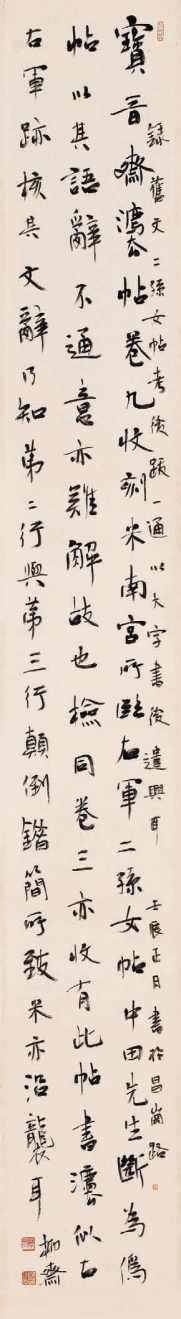 寶晉齋灋帖卷九收刻米南宮所臨右軍二孫女帖中田先生斷為僞
帖以其語辭不通意亦難解故也檢同卷三亦收有此帖書灋似右
右軍跡核其文辭乃知第二行與第三行顛倒錯簡所致米亦沿襲耳
錄舊文二孫女帖考後跋一通以大字書後遣興耳 壬辰正日書於昌崗路